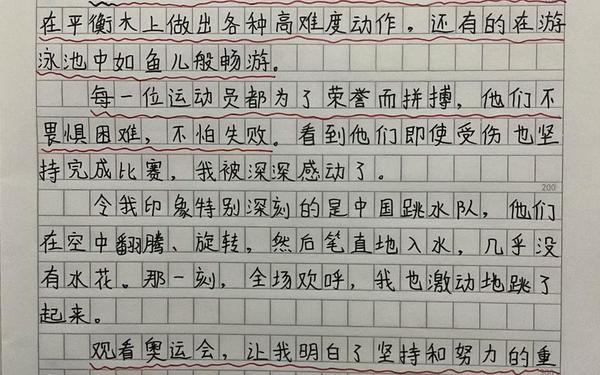 在平衡木上做出各种高难度动作，还有的在游
泳池中如鱼儿般畅游。
每一位运动员都为了荣誉而拼搏，他们不
畏惧困难，不怕失败。看到他们即使受伤也坚
持完成比赛，我被深深感动了。
200
令我印象特别深刻的是中国跳水队，他们
在空中翻腾、旋转，然后笔直地入水，几乎没
有水花。那一刻，全场欢呼，我也激动地跳了
起来。
观看奥运会，让我明白了坚持和努力的重